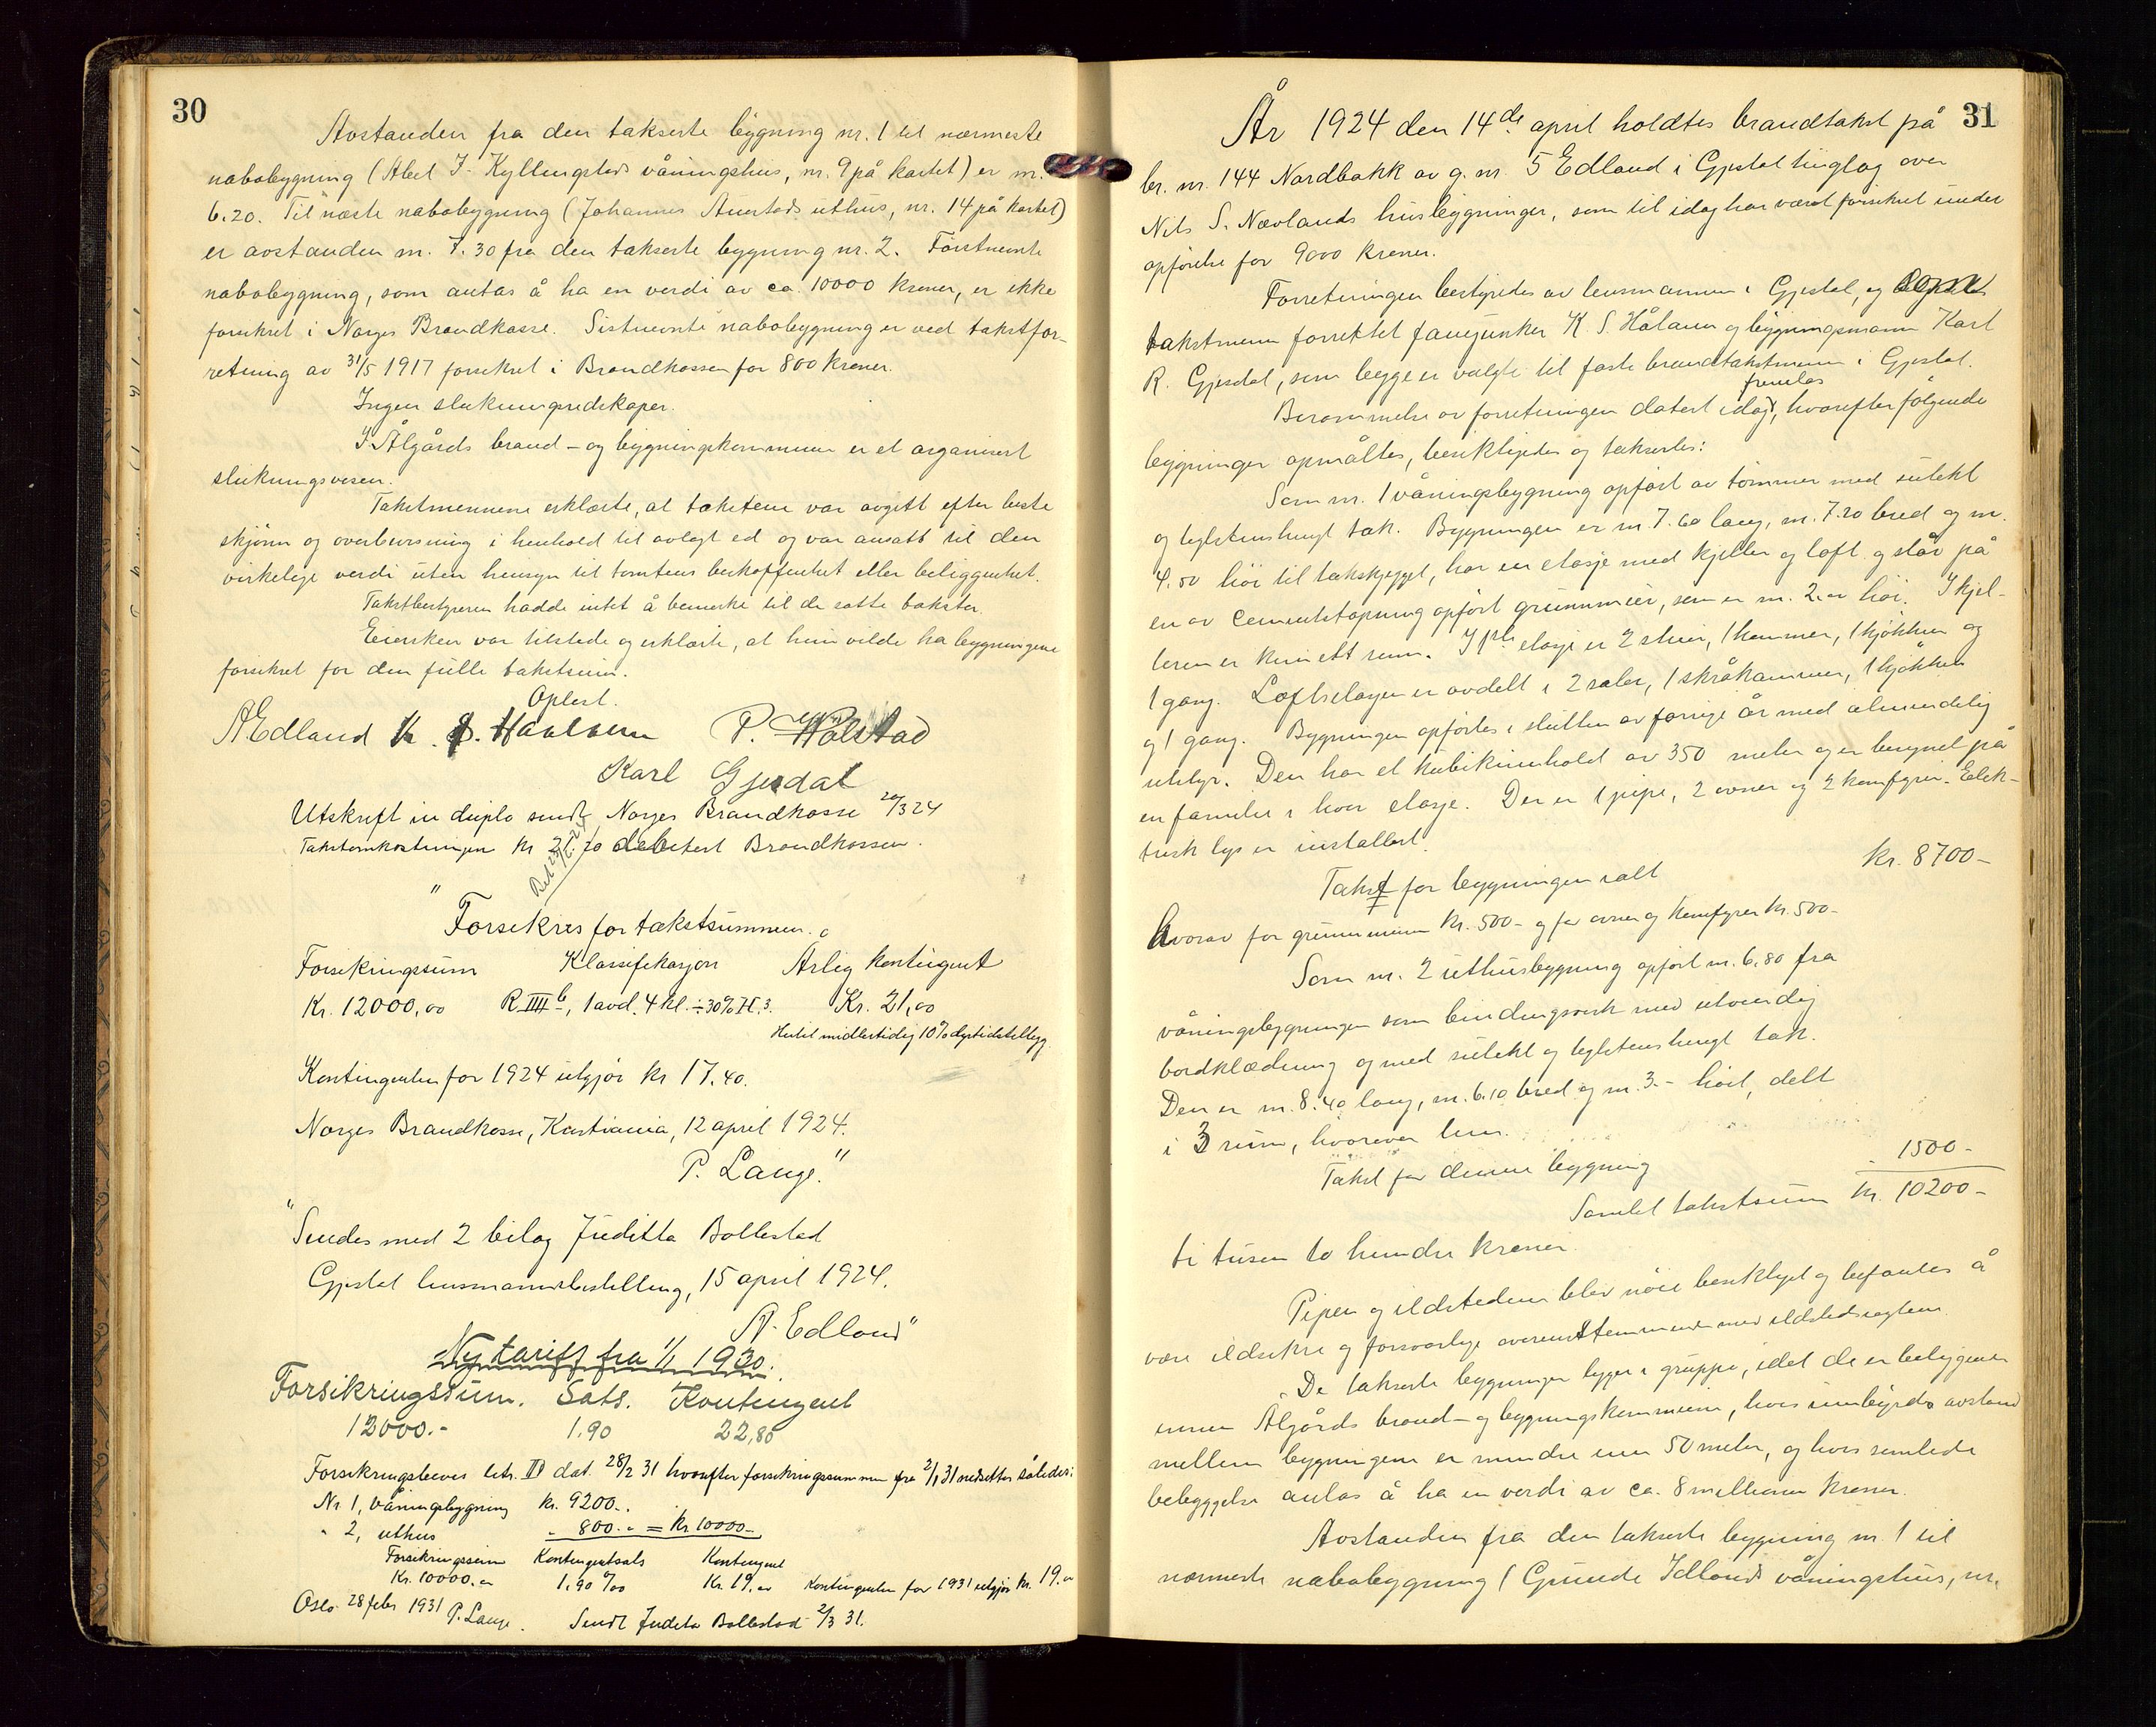 30
Avstanden fra den takserte bygning nr. 1 til nærmeste
nabobygning (Abel J. Kyllingstads våningshus, nr. 9 på kartet) er m.
6.20. Til næste nabobygning (Johannes Auestads uthus, nr. 14 på kartet)
er avstanden m. 7.30 fra den takserte bygning nr. 2. Førstnevnte
nabobygning, som antas å ha en verdi av ca. 10000 kroner, er ikke
forsikret i Norges Brandkasse. Sistnevnte nabobygning er ved takstfor-
retning av 31/5 1917 forsikret i Brandkassen for 800 kroner.
Ingen slukningsredskaper.
I Ålgårds brand- og bygningskommune er et organisert
slukningsvesen.
Takstmennene erklærte, at taksten var avgitt efter beste
skjønn og overbevisning i henhold til avlagt ed og var ansatt til den
virkelige verdi uten hensyn til tomtens beskaffenhet eller beliggenhet.
Takstbestyreren hadde intet å bemerke til de satte takster.
Eiersken var tilstede og erklærte, at hun vilde ha bygningene
forsikret for den fulle takstsum.
Oplest.
A Edland K. S. Haaland P. Wølstad
Karl Gjesdal
Utskrift in duplo sendt Norges Brandkasse 20/3 24
Takstomkostningen kr 21.20 debitert Brandkassen.
"Forsikres for takstsummen.
Forsikringssum Klassifikasjon Årlig kontingent
Kr. 12000,00 R IIII b, 1 avd. 4 kl. ÷ 30% H. 3. Kr. 21,00
Hertil midlertidig 10% dyrtidstillegg
Kontingenten for 1924 utgjør kr 17.40.
Norges Brandkasse, Kristiania, 12 april 1924.
P. Lange."
"Sendes med 2 bilag Juditta Bollestad
Gjestal lensmannsbestilling, 15 april 1924.
A. Edland"
Ny tariff fra 1/1 1930.
Forsikringssum. Sats. Kontingent
12000.- 1.90 22,80
Forsikringsbevis litr. dat. 28/2 31 hvorefter forsikringssummen fra 2/1 31 nedsettes således:
Nr 1, våningsbygning kr. 9200.-
" 2, uthus " 800.- = kr 10000.-
Forsikringssum Kontingentsats Kontingent
Kr. 10000.00 1.90 ‰ Kr. 19.00 Kontingenten for 1931 utgjør kr. 19.00
Oslo 28 febr 1931 P. Lange. Sendt Judita Bollestad 2/3 31.
31
År 1924 den 14de april holdtes brandtakst på
br. nr. 144 Nordbakk av g. nr. 5 Edland i Gjestal tinglag over
Nils S. Nævlands husbygninger, som til idag har været forsikret under
opførelse for 9000 kroner.
Forretningen bestyredes av lensmannen i Gjestal, og
takstmenn forrettet fanejunker K. S. Håland og bygningsmann Karl
R. Gjesdal, som begge er valgte til faste brandtakstmenn i Gjestal.
Berammelse av forretningen datert idag fremlas, hvorefter følgende
bygninger opmåltes, besiktigedes og takseredes:
Som nr. 1 våningsbygning opført av tømmer med sutekt
og teglstenshengt tak. Bygningen er m. 7.60 lang, m. 7.20 bred og m.
4.50 høi til takskjegget, har en etasje med kjeller og loft og står på
en av cementstøpning opført grunnmur, som er m. 2.00 høi. I kjel-
leren er kun ett rum. I 1ste etasje er 2 stuer, 1 kammer, 1 kjøkken og
1 gang. Loftsetasjen er avdelt i 2 saler, 1 skråkammer, 1 kjøkken
og 1 gang. Bygningen opførtes i slutten av forrige år med almindelig
utstyr. Den har et kubikinnhold av 350 meter og er beregnet på
en familie i hver etasje. Der er 1 pipe, 2 ovner og 2 komfyrer. Elek-
trisk lys er installert.
Takst for bygningen ialt kr. 8700-
hvorav for grunnmuren kr. 500- og for ovner og komfyrer kr. 500-
Som nr. 2 uthusbygning opført m. 6.80 fra
våningsbygningen som bindingsverk med utvendig
bordklædning og med sutekt og teglstenshengt tak.
Den er m. 8.40 lang, m. 6.10 bred og m. 3.- høi, delt
i 3 rum, hvorover lem.
Takst for denne bygning - 1500-
Samlet takstsum kr. 10200-
ti tusen to hundre kroner.
Pipen og ildstedene blev nøie besiktiget og befantes å
være ildsikre og forsvarlige overensstemmende med ildstedsreglene.
De takserte bygninger ligger i gruppe, idet de er beliggende
innen Ålgårds brand- og bygningskommune, hvis innbyrdes avstand
mellem bygningene er mindre enn 50 meter, og hvis samlede
bebyggelse antas å ha en verdi av ca. 8 millioner kroner.
Avstanden fra den takserte bygning nr. 1 til
nærmeste nabobygning (Gunde Idlands våningshus, nr.